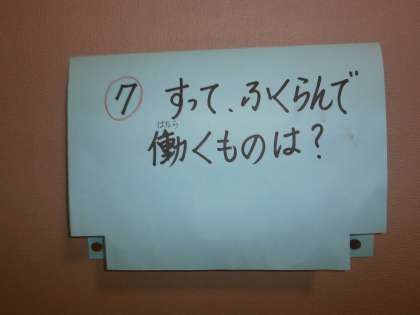 ⑦ すって、ふくらんで
働くものは?
はたら